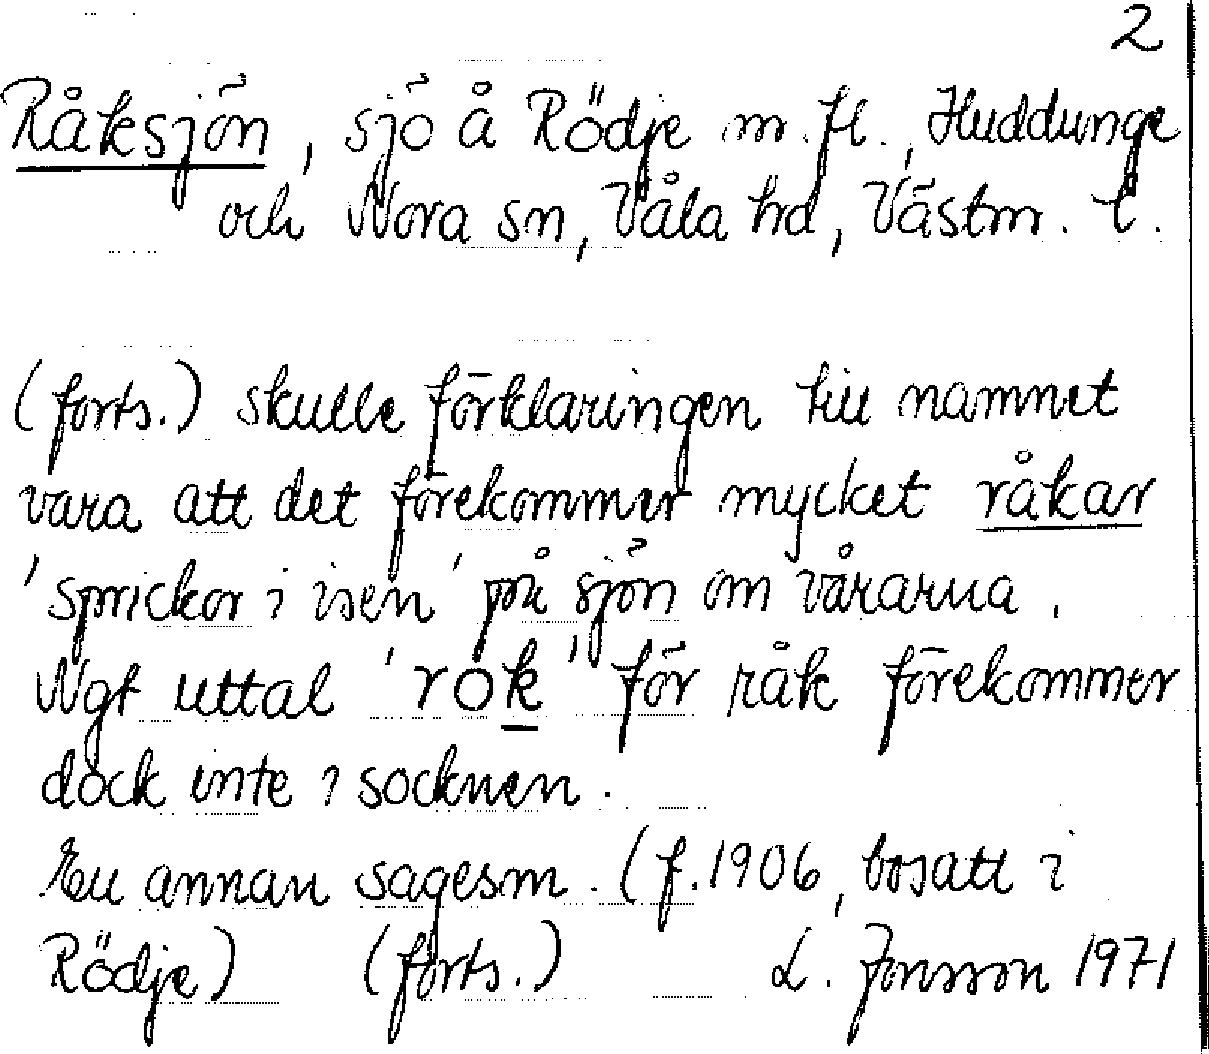 2
Råksjön, sjö å Rödje m.fl., Huddunge
och Nora sn, Våla hd, Västm. l.
(forts.) skulle förklaringen till namnet
vara att det förekommer mycket råkar
'sprickor i isen' på sjön om vårarna.
Ngt uttal 'rok' för råk förekommer
dock inte i socknen.
En annan sagesm. (f. 1906, bosatt i
Rödje) (forts.) L. Jonsson 1971